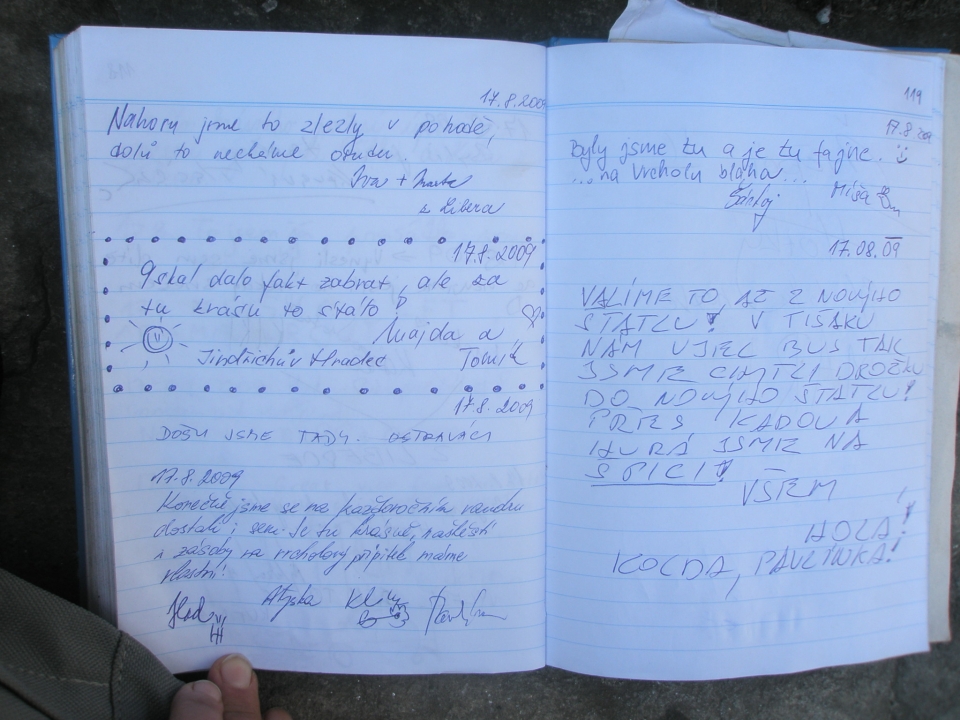 17.8.2009
Nahoru jsme to zlezly v pohodě,
dolů to necháme osudu.
Iva +
z Libera
17.8.2009
9 skal dalo fakt zabrat, ale za
tu krásu to stálo!
Majda a
Jindřichův Hradec Tomík
17.8.2009
DOŠLI JSME TADY. OSTRAVÁCI
17.8.2009
Konečně jsme se na každoročním vandru
dostali i sem. Je tu krásně, naštěstí
i zásoby na vrcholový přípitek máme
vlastní!
119
17.8.2009
Byly jsme tu a je tu fajne.
...na vrcholu blaha...
Míša
17.08.09
VALÍME TO, AŽ Z NOVÝHO
ŠTATLU! V TIŠÁKU
NÁM UJEL BUS TAK
JSME CHYTLI DROŽKU
DO NOVÝHO ŠTATLU!
PŘES KADOVA
HURÁ JSME NA
ŠPICI!
VŠEM
HOLA!
KOLDA, PAVLÍNKA!